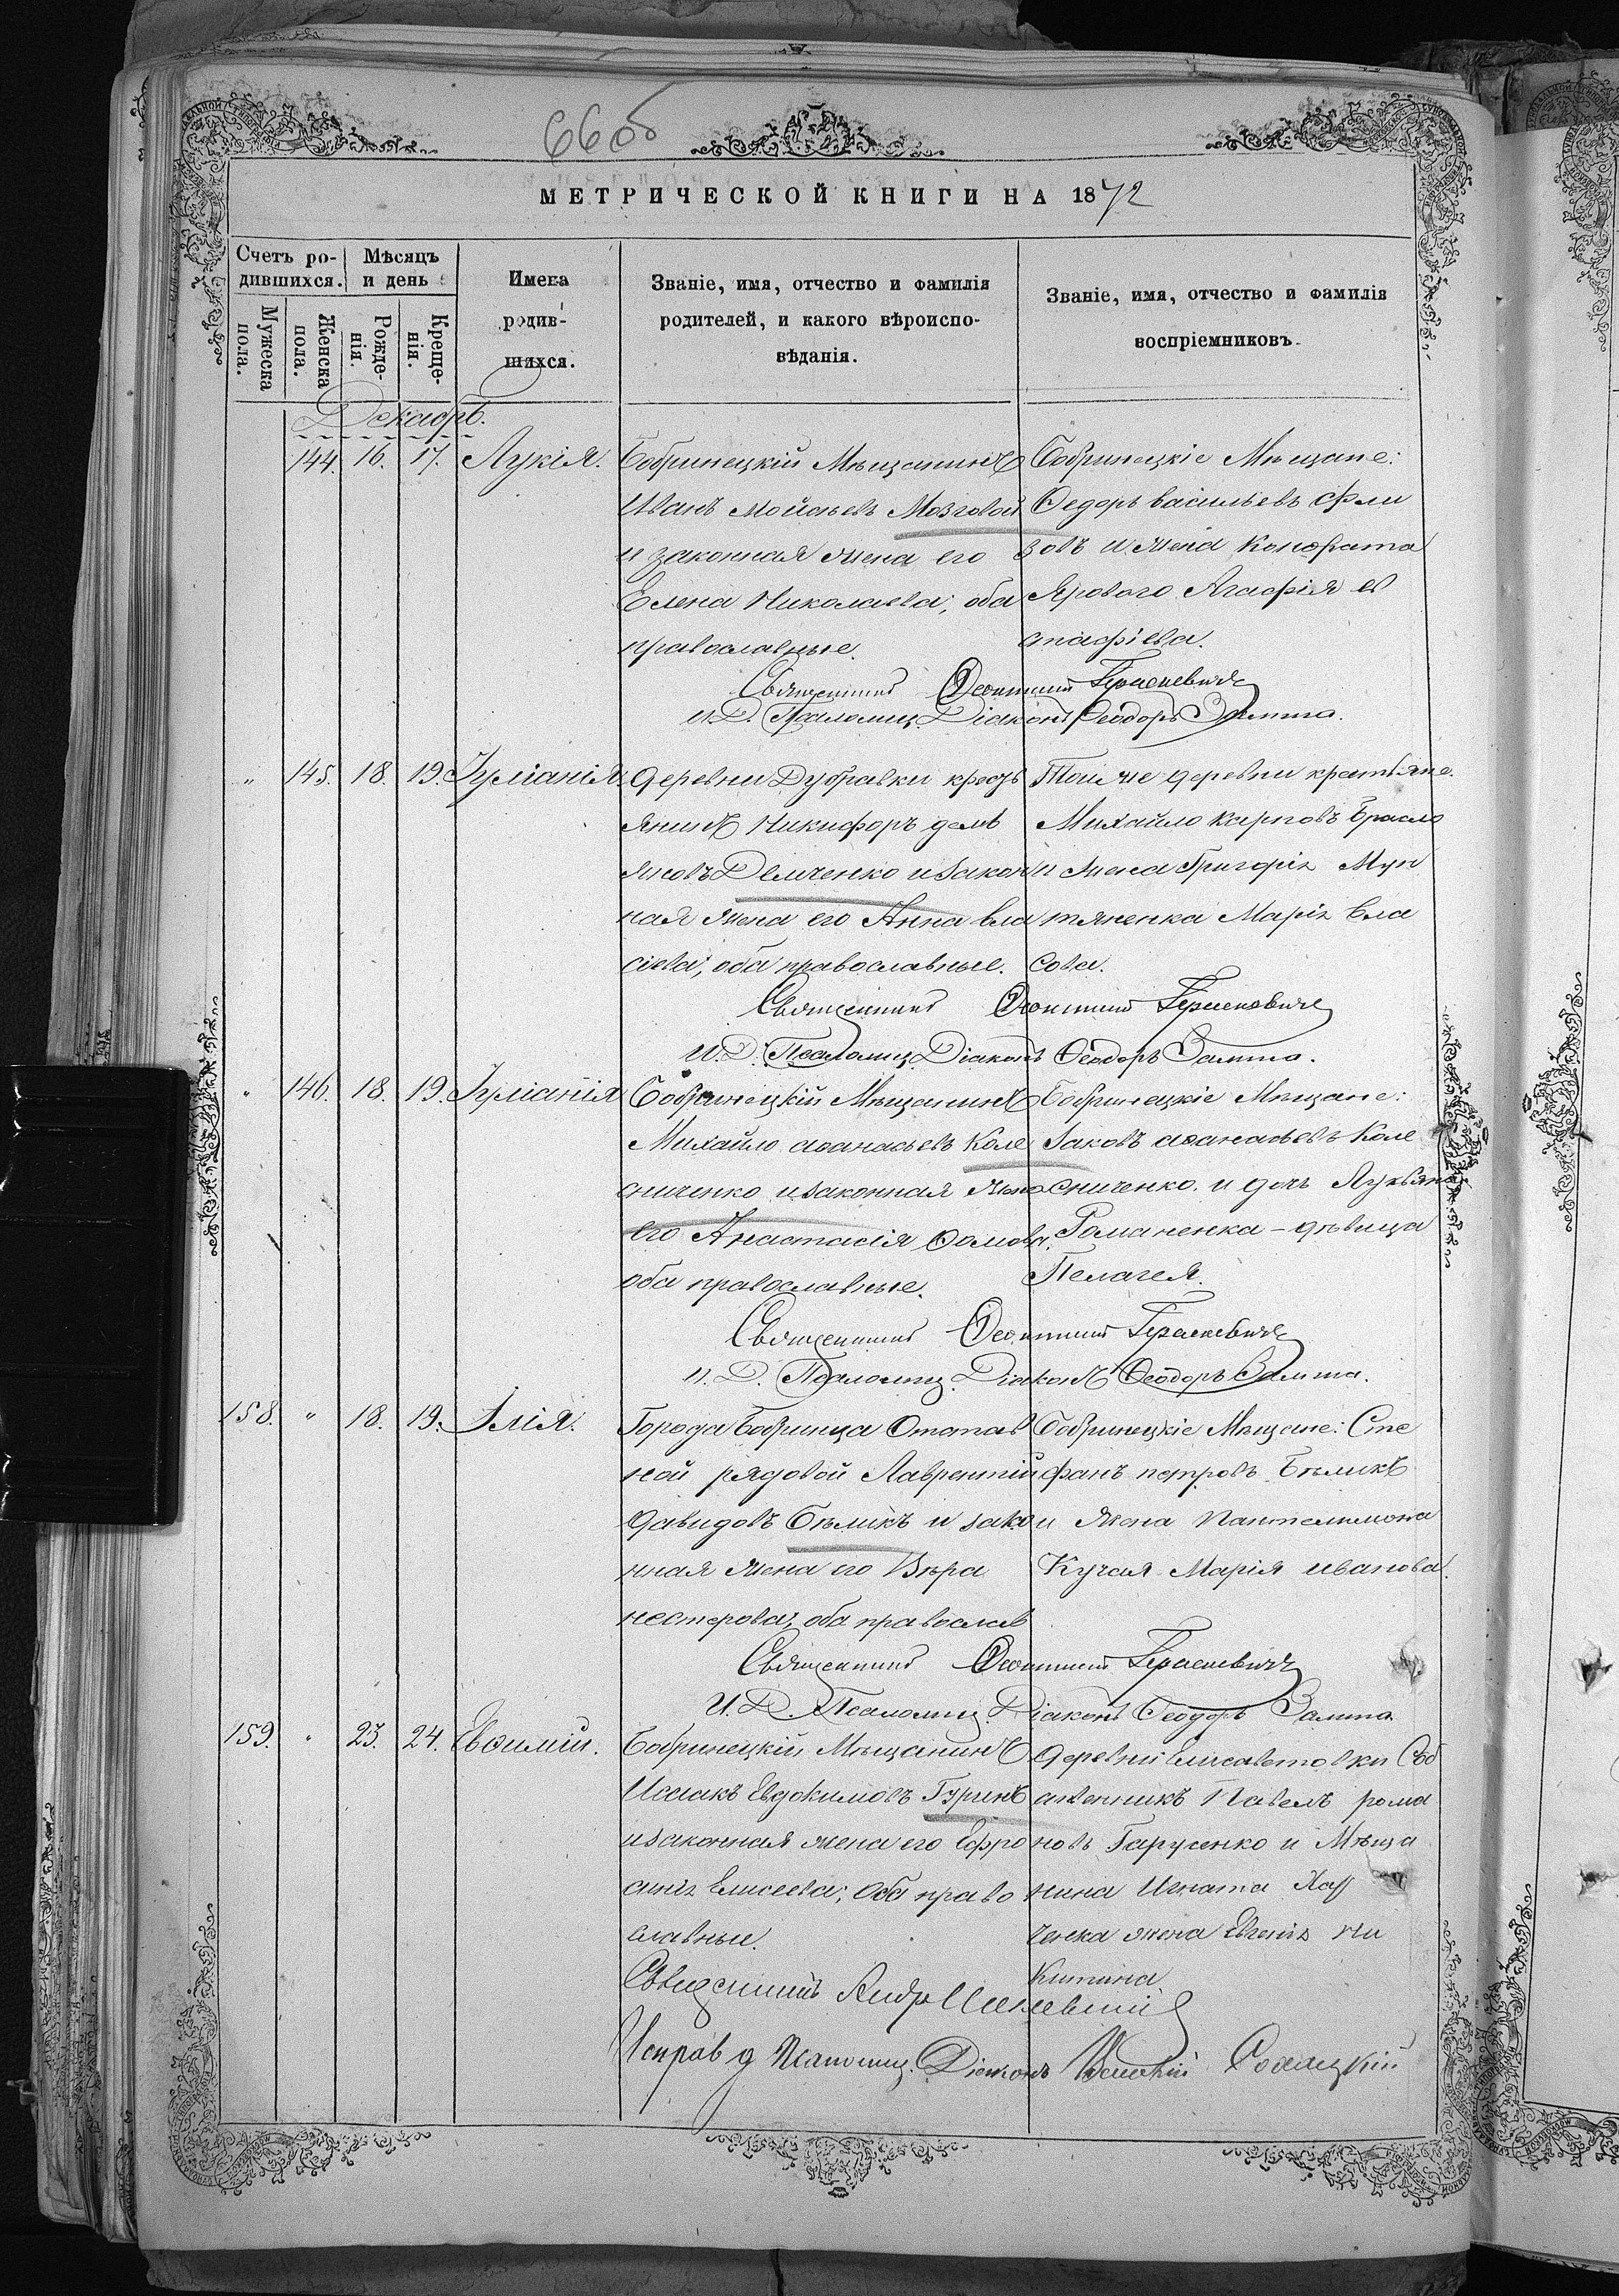 660б
МЕТРИЧЕСКОЙ КНИГИ НА 1872
Счетъ ро-
дившихся.
Мѣсяцъ
и день
Мужеска
пола.
Женска
пола.
Рожде-
нія.
Креще-
нія.
Имена
родив-
шихся.
Званіе, имя, отчество и фамилія
родителей, и какого вѣроиспо-
вѣданія.
Званіе, имя, отчество и фамилія
воспріемниковъ.
Декабрь.
144. 16. 17. Лукія.
Бобринецкій Мѣщанинъ
Иванъ Мойсѣевъ Мозговой
и законная жена его
Елена Николаева; оба
православные.
Бобринецкіе Мѣщане:
Ѳедоръ васильевъ
зовъ и жена Кондрата
Ярового Агафія ев
стафіева.
Священникъ Герасневичъ
И.Д. Псаломщ. Діаконъ Ѳеодоръ
" 145. 18. 19. Іуліанія.
Деревни Дубравки кресть
янинъ Никифоръ демь
яновъ Демченко и закон
ная жена его Анна вла
сіева; оба православные.
Той же деревни крестьяне.
Михайло Карповъ
и жена Григорія Мун
тяненка Марія Вла
сова.
Священникъ Герасневичъ
И.Д. Псаломщ. Діаконъ Ѳеодоръ
" 146. 18. 19. Іуліанія
Бобринецкій Мѣщанинъ
Михайло аѳанасьевъ Коле
сниченко и законная жена
его Анастасія Ѳомова,
оба православные.
Бобринецкіе Мѣщане:
Іаковъ аѳанасьевъ Коле
сниченко. и дочь Лукьяна
Романенка – дѣвица
Пелагея.
Священникъ Герасневичъ
И.Д. Псаломщ. Діаконъ Ѳеодоръ
158. " 18. 19. Ілія.
Города Бобринца Отстав
ной рядовой Лаврентій
давидовъ Бѣликъ и зако
нная жена его Вѣра
нестерова, оба православ
Бобринецкіе Мѣщане: Сте
фанъ петровъ Бѣликъ
и жена Пантелимона
Кучая Марія иванова.
Священникъ Герасневичъ
И.Д. Псаломщ. Діаконъ Ѳеодоръ
159. " 23. 24. Евѳимій.
Бобринецкій Мѣщанинъ
Исаакъ Евдокимовъ Гуринъ
и законная жена его Ефро
синія Елисеева; Оба право
славные.
Деревни Елисаветовки Соб
ственникъ Павелъ рома
новъ Гарусенко и Мѣща
нина Игната
ченка жена Евгенія Ни
китина
Священникъ Андр
Исправ д Псаломщ. Діаконъ